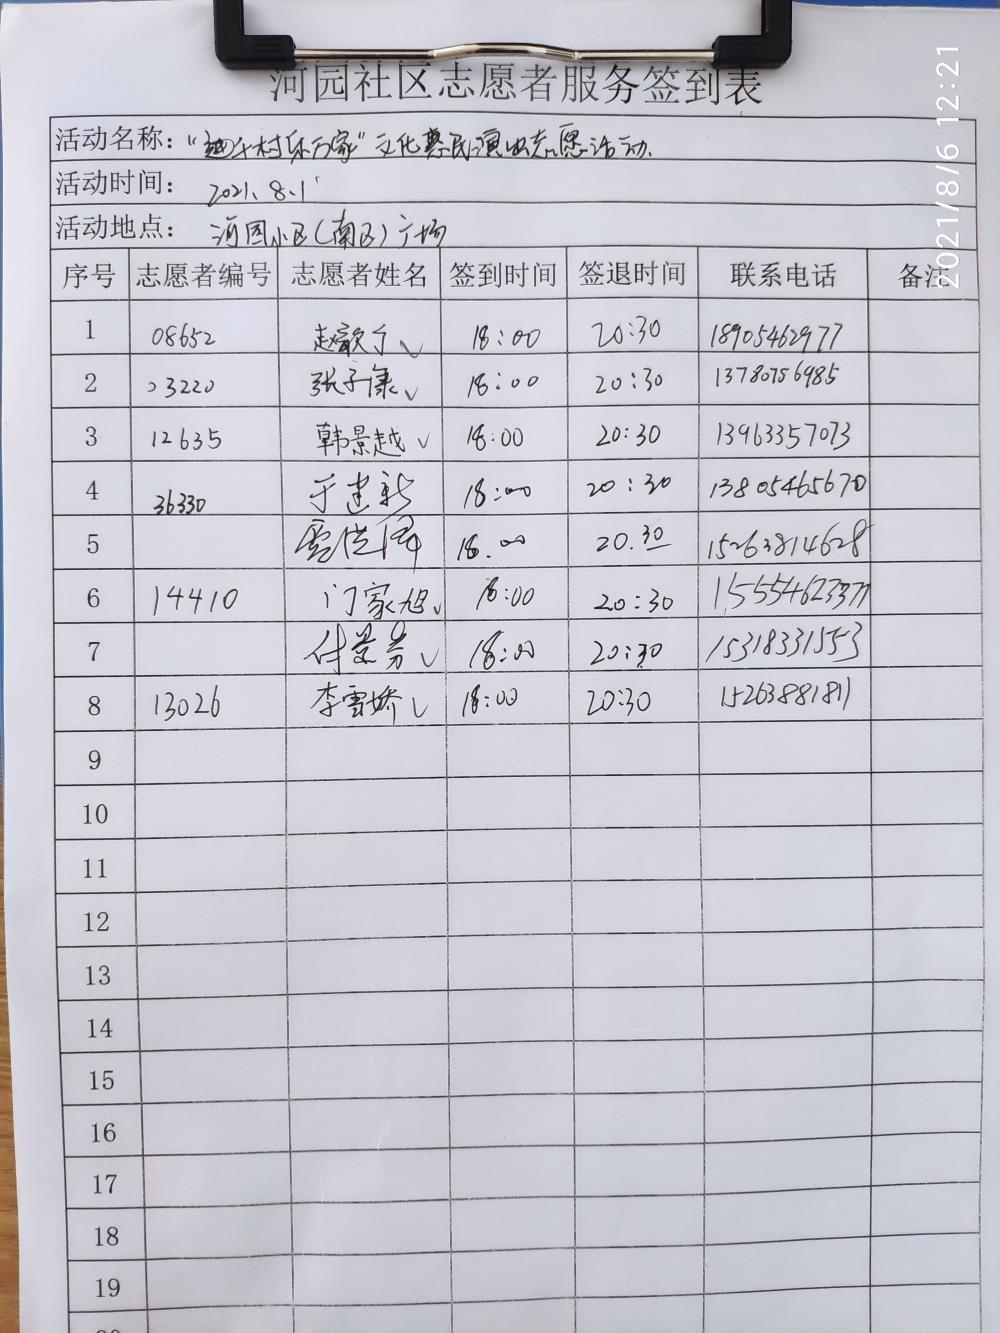 河园社区志愿者服务签到表
活动名称：“趣千村乐万家”文化惠民演出志愿活动.
活动时间： 2021.8.1
活动地点： 河园小区(南区)广场
序号 志愿者编号 志愿者姓名 签到时间 签退时间 联系电话 备注
1 08652 赵歆宁 ✓ 18:00 20:30 18905462977
2 03220 张子康 ✓ 18:00 20:30 13780756985
3 12635 韩景越 ✓ 18:00 20:30 13963357073
4 36330 于建新 18:00 20:30 13805465670
5 18.00 20.30 15263814628
6 14410 门家旭 ✓ 18:00 20:30 15554623377
7 付景芳 ✓ 18:00 20:30 15318331553
8 13026 李雪娇 ✓ 18:00 20:30 15263881811
9
10
11
12
13
14
15
16
17
18
19
2021/8/6 12:21